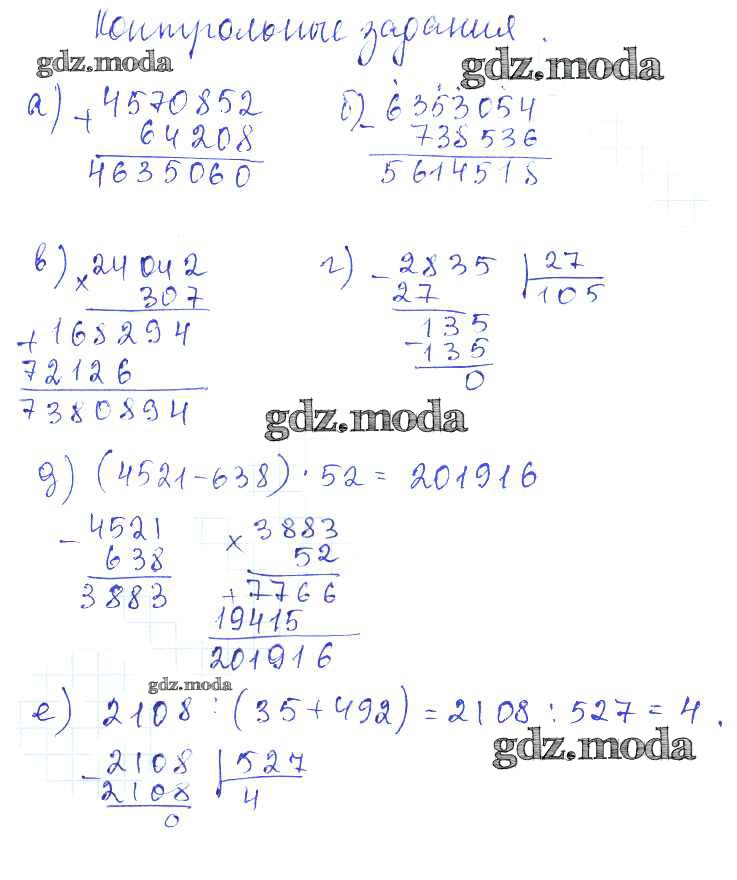 Контрольные задания.
gdz.moda
gdz.moda
а) + 4570852
64208
4635060
б) - 6353054
738536
5614518
в) × 24042
307
+ 168294
72126
7380894
г) - 2835 | 27
27 105
135
- 135
0
gdz.moda
д) (4521-638)·52= 201916
- 4521
638
3883
× 3883
52
+ 7766
19415
201916
gdz.moda
е) 2108 : (35+492) = 2108 : 527 = 4.
gdz.moda
- 2108 | 527
2108 4
0